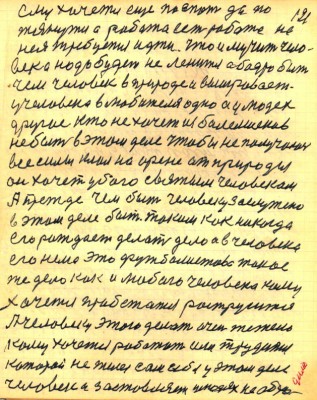 ему хочется еще поспат да по
121
тянутся а работа ест работа на
нея требуется идти. Что и мучит чело-
века надо будет не ленится а бодро быт
чем человек в природе а выигравает
у человека в любителя одно а у людех
другое кто не хочет из болелщиков
небыт в этом деле чтобы не получалос
все силы
на арене от природы
он хочет убого святым человекам
А прежде чем быт человеку заслужено
в этом деле быт таким как никогда
Его рождает делат дело а в человека
его нема Это футбалистов такое
же дело как и любого человека кому
хочется пробежатся
А человеку этого делат очен тяжело
кому хочется работат или трудится
которой не желее сам себя у этом деле
человека заставляет